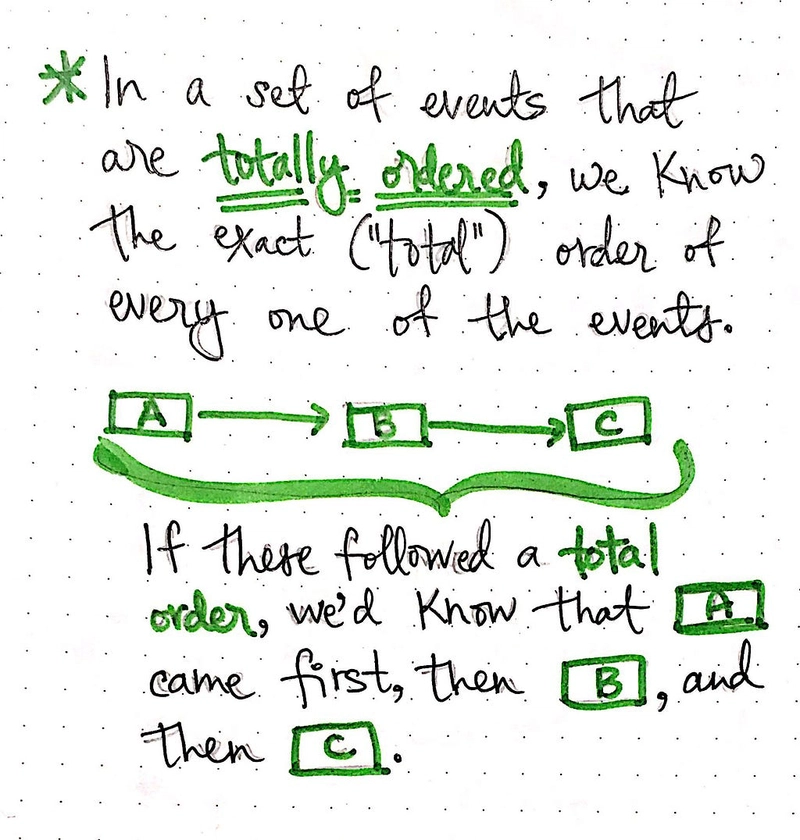 * In a set of events that
are totally ordered, we know
the exact ("total") order of
every one of the events.
A → B → C
If these followed a total
order, we'd know that A
came first, then B, and
then C.